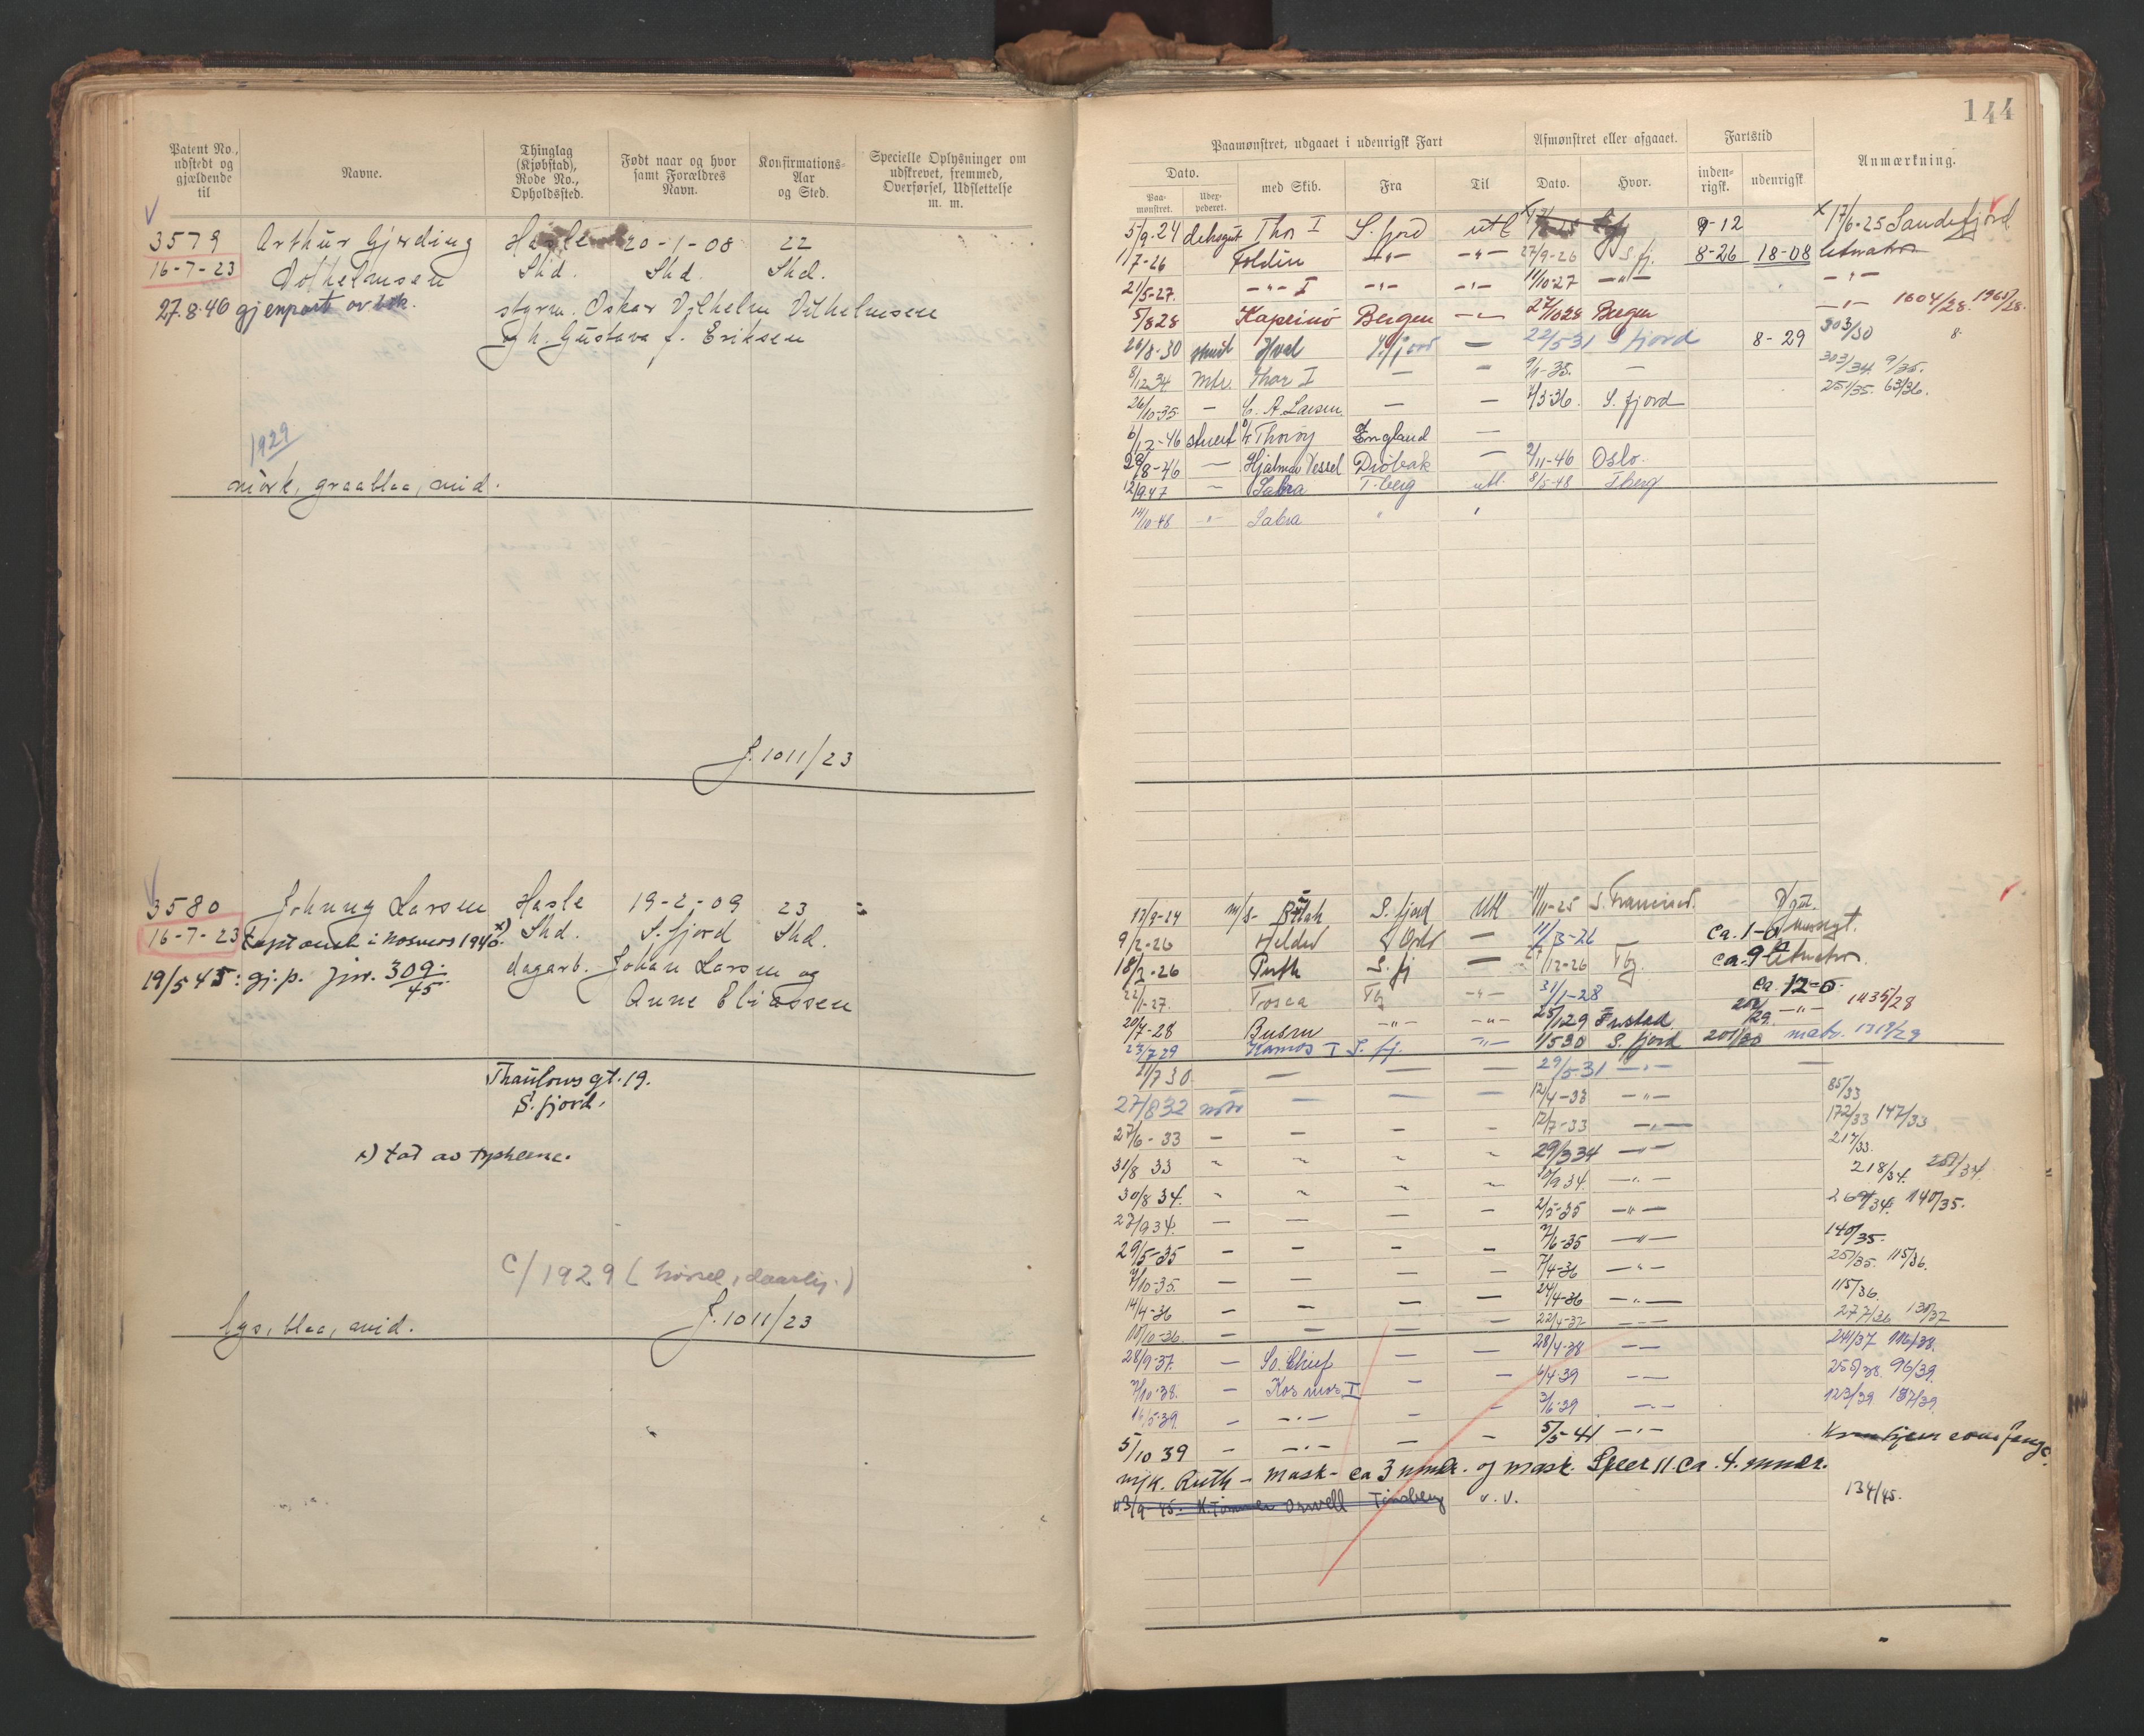 144
Patent No., udstedt og gjældende til
Navne.
Thinglag (Kjøbstad), Rode No., Opholdssted.
Født naar og hvor samt Forældres Navn.
Konfirmations-Aar og Sted.
Specielle Oplysninger om udskrevet, fremmed, Overførsel, Udslettelse m. m.
3579 Arthur Gjerding Hasle 20-1-08 22
16-7-23 Vilhelmsen Shd. Shd. Shd.
27.8.40 gjenpart av bok. styrm. Oskar Vilhelm Vilhelmsen
og h. Gustava f. Eriksen
1929
mørk, graablaa, mid.
J. 1011/23
3580 Johnny Larsen Hasle 19-2-09 23
16-7-23 tapt ombord i Kosmos 1940 x) Shd. S. fjord Shd.
19/5 45: gj.p. jnr. 309/45. dagarb. Johan Larsen og
Anne Eliassen
Thaulows gt. 19.
S. fjord.
x) tat av tyskerne.
C/1929 (hørsel, daarlig.)
lys, blaa, mid. J. 1011/23
Paamønstret, udgaaet i udenrigsk Fart
Afmønstret eller afgaaet.
Fartstid
Anmærkning.
Dato.
Paa-mønstret.
Udex-pederet.
med Skib.
Fra
Til
Dato.
Hvor.
inden-rigsk.
udenrigsk
5/9-24 deksgut Thor I S. fjord utl 9-12 x 17/6-25 Sandefjord
1/7-26 Foldin -"- -"- 27/9-26 S. fj. 8-26 18-08 letmatros
21/5-27. -"- I -"- -"- 11/10-27 -"- -"-
5/8 28 Kaprino Bergen -"- 27/10 28 Bergen -"- 1604/28. 1965/28.
26/8-30 Hval S. fjord — 22/5 31 S fjord 8-29 303/30
8/12 34 Mtr. Thor I — — 9/1-35. — 303/34. 9/35.
26/10-35. — C. A. Larsen — — 7/3-36. S. fjord 251/35. 63/36.
6/12-46 stuert Thorøy England —
28/8-46 — Hjalmar Wessel Drøbak — 9/11-46 Oslo.
12/9 47 — Sabra T. berg utl. 8/5-48 T berg
14/10-48 -"- Sabra " "
13/9-24 m/s- S. fjord Utl 11/11-25 S. Francisco. Jgt.
9/2-26 Oslo — 11/3-26 ca. 1-0
18/2-26 Ruth S. fj — /12-26 Tbg. ca. 9- letmatros
22/1-27. Tosca Tbg -"- 31/1-28 ca. 12-5.
20/7-28 Busen -"- -"- 25/1 29 202/29. -"- 1435/28
23/7 29 Kosmos I S. fj. -"- 1/5 30 S. fjord 201/30 matr. 1318/29
21/7 30 — — — 29/5-31 -"- —
27/8 32 mtr — — — 12/4-33 -"- 85/33
27/6-33 — — — — 12/7-33 -"- 172/33 147/33
31/8 33 " " " " 29/3 34 -"- 217/33.
30/8 34. " " " " 10/9 34. -"- 218/34. 251/34.
23/9 34. — — — — 2/5-35 -"- 269/34. 140/35.
29/5-35 — — — — 7/6-35 -"- 140/35.
7/10-35. — — — — 7/4-36 -"- 257/35. 115/36.
14/4-36 — — — — 24/4-36 -"- 115/36.
10/10-36. — — — — 22/4-37 -"- 277/36 130/37
28/9-37. — So. Chief — — 28/4-38 -"- 241/37 116/38.
7/10-38. — Kosmos I — — 6/4-39 -"- 255/38. 96/39.
16/5-39. — -"- — — 3/6-39 -"- 123/39 187/39.
5/10 39 — -"- — — 5/5-41 -"- Kom hjem som fange.
m/k. Ruth - mask - ca 3 mndr. og mask. Speer II. ca. 4. mndr.
3/9-45. Orwell Tønsberg v. v. 134/45.